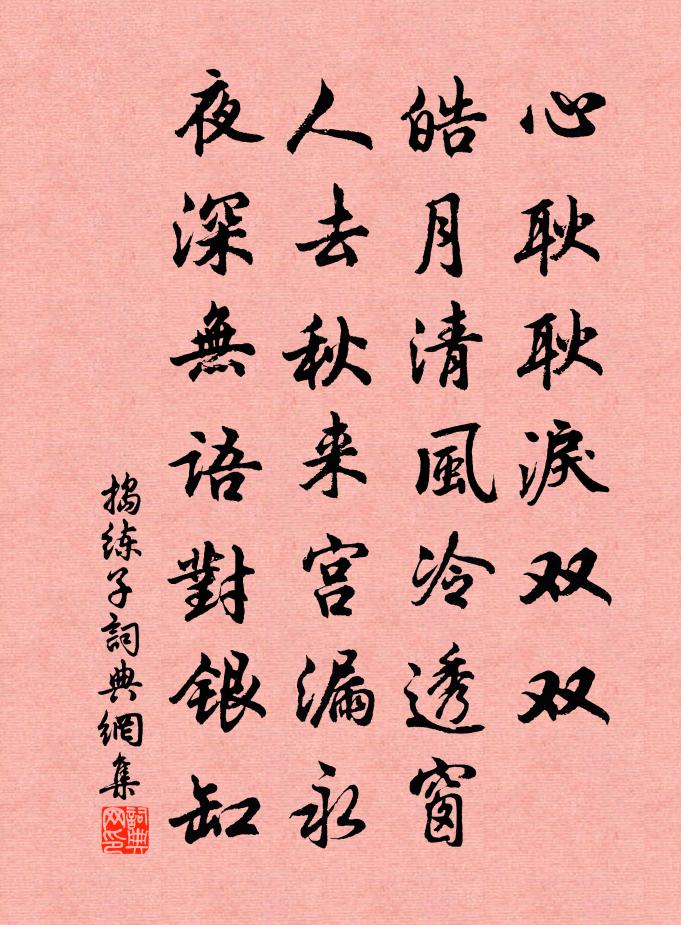 心耿耿淚双双
皓月清風冷透窗
人去秋来宫漏永
夜深無语對银缸
搗练子詞典網集
詞典网印